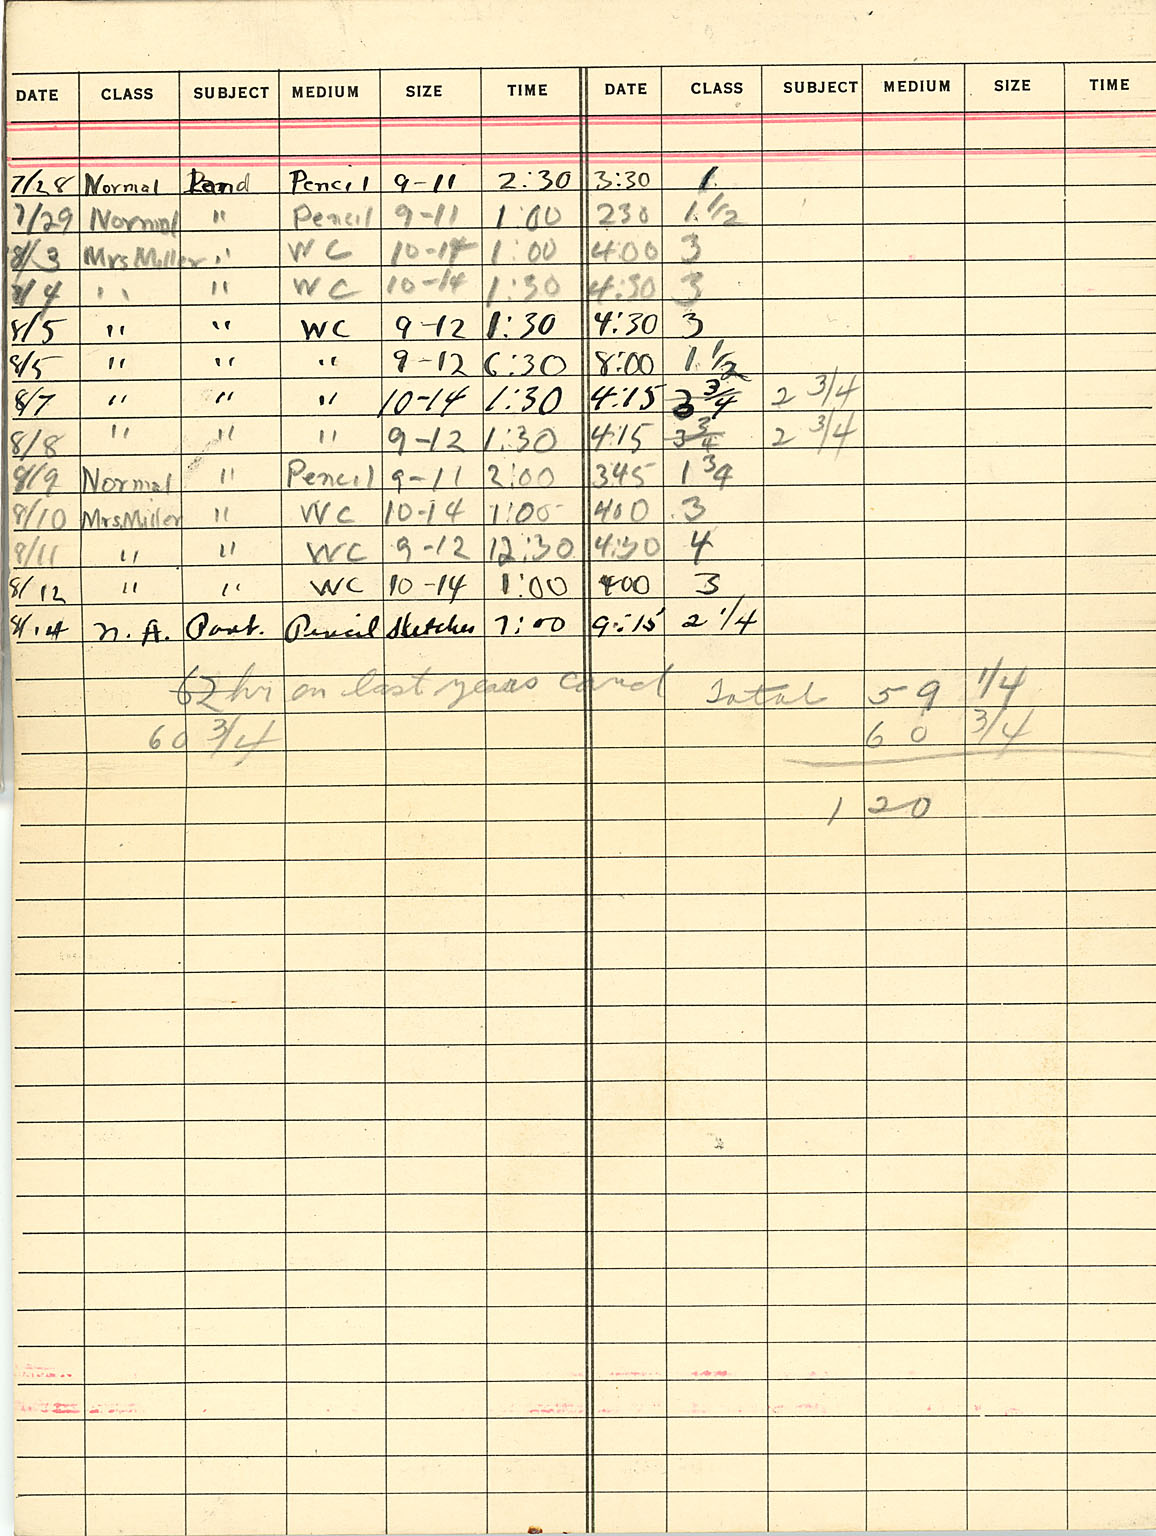 DATE CLASS SUBJECT MEDIUM SIZE TIME DATE CLASS SUBJECT MEDIUM SIZE TIME
7/28 Normal Land Pencil 9-11 2:30 3:30 1
7/29 Normal " Pencil 9-11 1:00 230 1 1/2
8/3 Mrs Miller " WC 10-14 1:00 4:00 3
8/4 " " WC 10-14 1:30 4:30 3
8/5 " " WC 9-12 1:30 4:30 3
8/5 " " " 9-12 6:30 8:00 1 1/2
8/7 " " " 10-14 1:30 4:15 3 3/4 2 3/4
8/8 " " " 9-12 1:30 4:15 3 3/4 2 3/4
8/9 Normal " Pencil 9-11 2:00 345 1 3/4
8/10 Mrs Miller " WC 10-14 1:00 400 3
8/11 " " WC 9-12 12:30 4:30 4
8/12 " " WC 10-14 1:00 400 3
8/14 N. A. Port. Pencil Sketches 7:00 9:15 2 1/4
62 hr on last years card Total 59 1/4
60 3/4 60 3/4
120